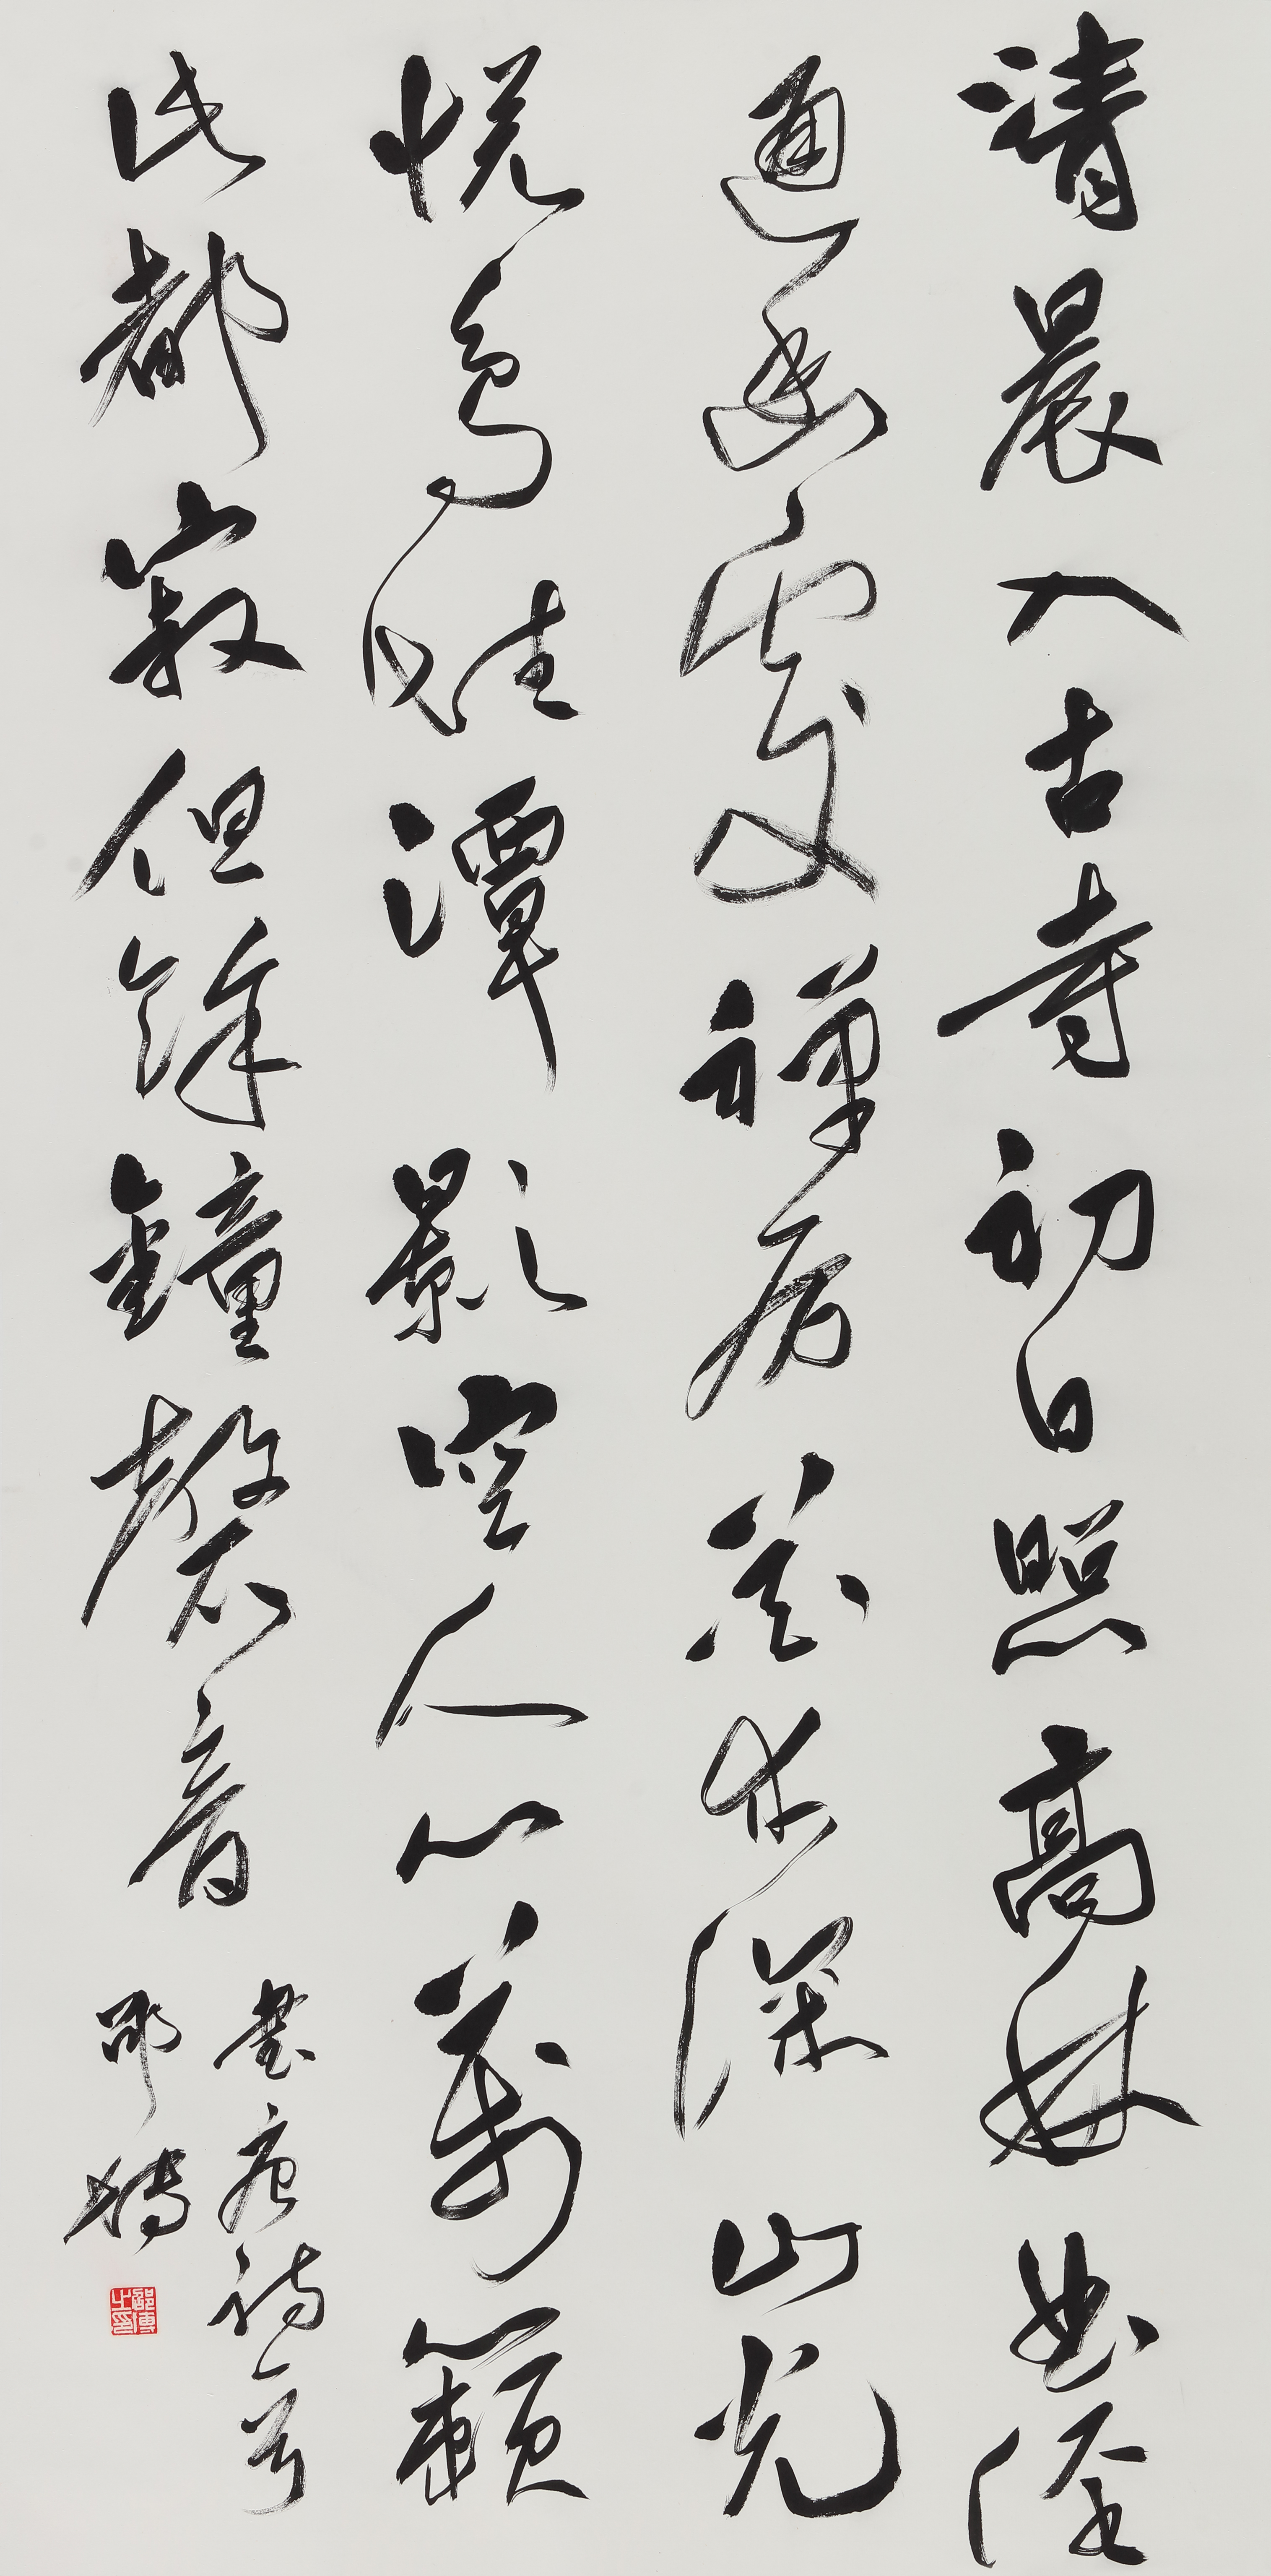 清晨入古寺初日照高林曲径
通幽處禪房花木深山光
悦鳥性潭影空人心萬籟
此都寂但餘鐘磬音
書唐詩一首
邵博